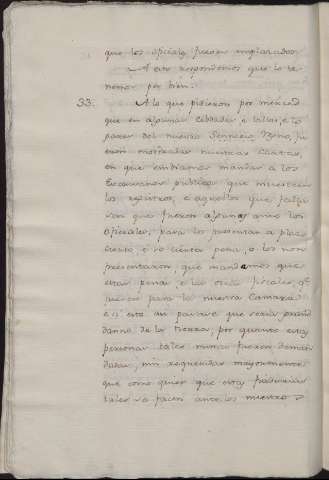 que los oficiales fuesen emplazados
A esto respondemos que lo te-
nemos por bien.
33. A lo que pidieron por merced
que en algunas Cibdades e Villas, e lo
gares del nuestro Sennorio Regno, fu
eron mostradas nuestras Cartas,
en que embiamos mandar a los
Escrivanos publicos que muestren
los registros, e aquellos que falla
ren que fueron algunos ante los
oficiales, para los presentar a plazo
cierto, e so cierta pena, e los non
presentaron, que mandemos que
estas penas e las otras fiscales, q̃
sean para la nuestra Camara
e q̃ esto an parave que seria grand
danno de la tierra, por quanto estas
personas tales nunca fueron deman
dadas, nin requeridas mayormente
que como quier que estas fiadurias
tales se facen ante los nuestros